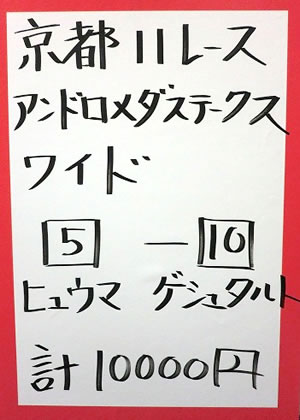 京都11レース
アンドロメダステークス
ワイド
5 — 10
ヒュウマ ゲシュタルト
計10000円